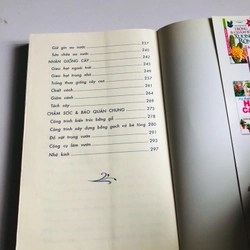 Giữ gìn ao nước 237
Sửa chữa ao nước 241
NHÂN GIỐNG CÂY 245
Gieo hạt ngoài trời 245
Gieo hạt trong nhà 247
Trồng theo giống cây con 255
Chiết cành 261
Giâm cành 264
Tách cây 269
CHĂM SÓC & BẢO QUẢN CHUNG 275
Công trình kiến trúc bằng gỗ 275
Công trình xây dựng bằng gạch và bê tông 280
Đồ vật trong vườn 291
Công cụ làm vườn 293
Nhà kính 297